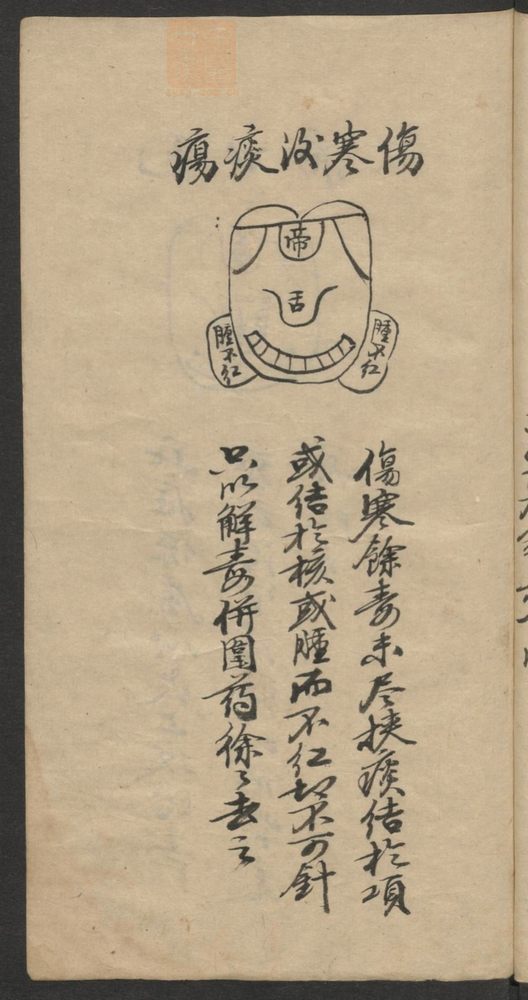 傷寒没痰瘍
帝
舌
腫不紅
腫不紅
傷寒餘毒未尽挾痰结於項
或结於核或腫而不红却不可針
只以解毒併圍药徐〻去之